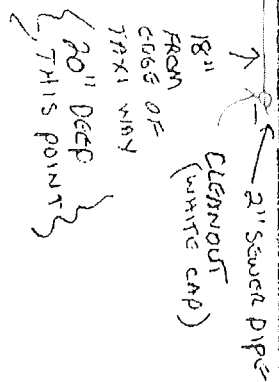 2" SEWER PIPE
CLEANOUT
(WHITE CAP)
18"
FROM
EDGE OF
TAXI WAY
20" DEEP
THIS POINT